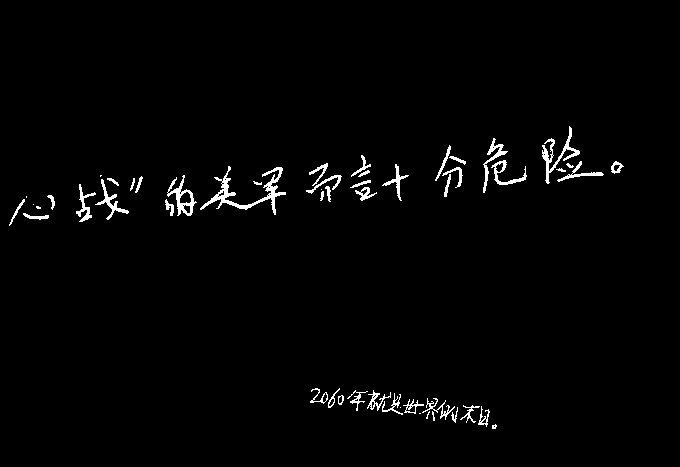 心战”的美军而言十分危险。
2060年就是世界的末日。